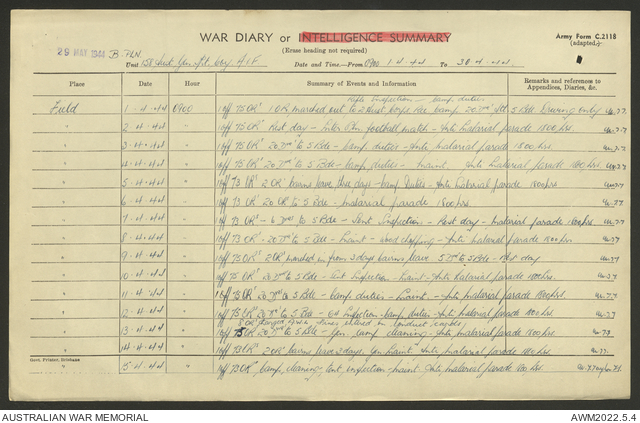 WAR DIARY or INTELLIGENCE SUMMARY
Army Form C.2118
(adapted.)
(Erase heading not required)
29 MAY 1944 B. PLN.
Unit Aust. Gen. Coy. A.I.F. Date and Time—From 0900 1.4.44 To 30.4.44
Place Date Hour Summary of Events and Information Remarks and references to Appendices, Diaries, &c.
Rifle Inspection - Camp duties
Field 1.4.44 0900 1 off 75 OR's 1 OR marched out to 2 Aust camp 20 to 5 Bde Driving only
" 2.4.44 1 off 75 OR's Rest day - Inter Pln football match - Anti Malarial parade 1800 hrs.
" 3.4.44 1 off 75 OR's 20 to 5 Bde - camp duties - Anti Malarial parade 1800 hrs.
" 4.4.44 1 off 75 OR's 20 to 5 Bde - camp duties - Maint. Anti Malarial parade 1800 hrs.
" 5.4.44 1 off 73 OR's 2 OR cairns leave three days - camp duties - Anti Malarial parade 1800 hrs
" 6.4.44 1 off 73 OR 20 OR to 5 Bde - Malarial parade 1800 hrs
" 7.4.44 1 off 73 OR - 6 to 5 Bde - Tent Inspection - Rest day - Malarial parade 1800 hrs
" 8.4.44 1 off 73 OR's 20 to 5 Bde - Maint - wood chopping - Anti malarial parade 1800 hrs.
" 9.4.44 1 off 75 OR's 2 OR marched in from 3 days cairns leave 5 to 5 Bde Rest day
" 10.4.44 1 off 75 OR's 20 to 5 Bde - Tent Inspection - Maint - Anti Malarial parade 1800 hrs.
" 11.4.44 1 off 75 OR's 20 to 5 Bde - camp duties - Maint. - Anti Malarial parade 1800 hrs.
" 12.4.44 1 off 75 OR's 20 to 5 Bde - Inspection - camp duties - Anti Malarial parade 1800 hrs
5 OR charged A.W.L. Fines entered in conduct
" 13.4.44 1 off 75 OR 20 to 5 Bde - Gen. camp cleaning - Anti Malarial parade 1800 hrs.
" 14.4.44 1 off 73 OR's 2 OR cairns leave 3 days. Gen Maint Anti malarial parade 1800 hrs.
Govt. Printer, Brisbane
" 15.4.44 1 off 73 OR's camp cleaning - tent inspection - maint Anti malarial parade 1800 hrs.
AUSTRALIAN WAR MEMORIAL AWM2022.5.4